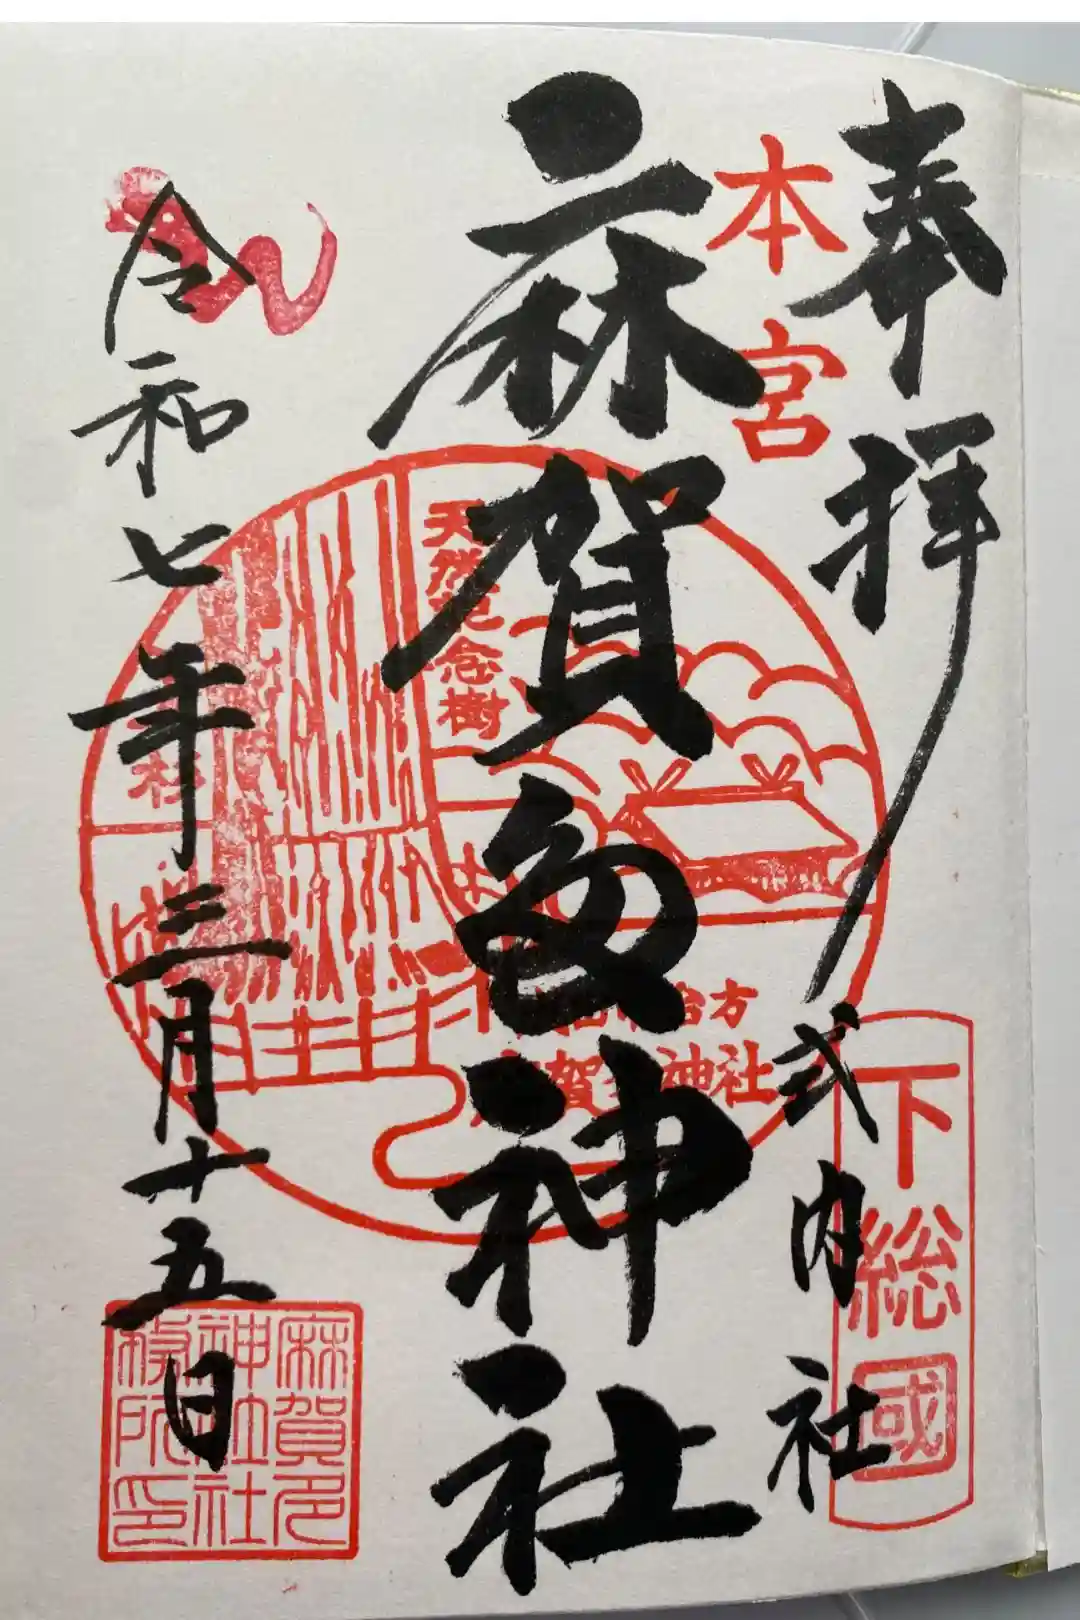 奉拝
式内社
下総國
本宮
麻賀多神社
天然記念樹
杉
方
賀 神社
令和七年三月十五日
麻賀多
神社社
役所印